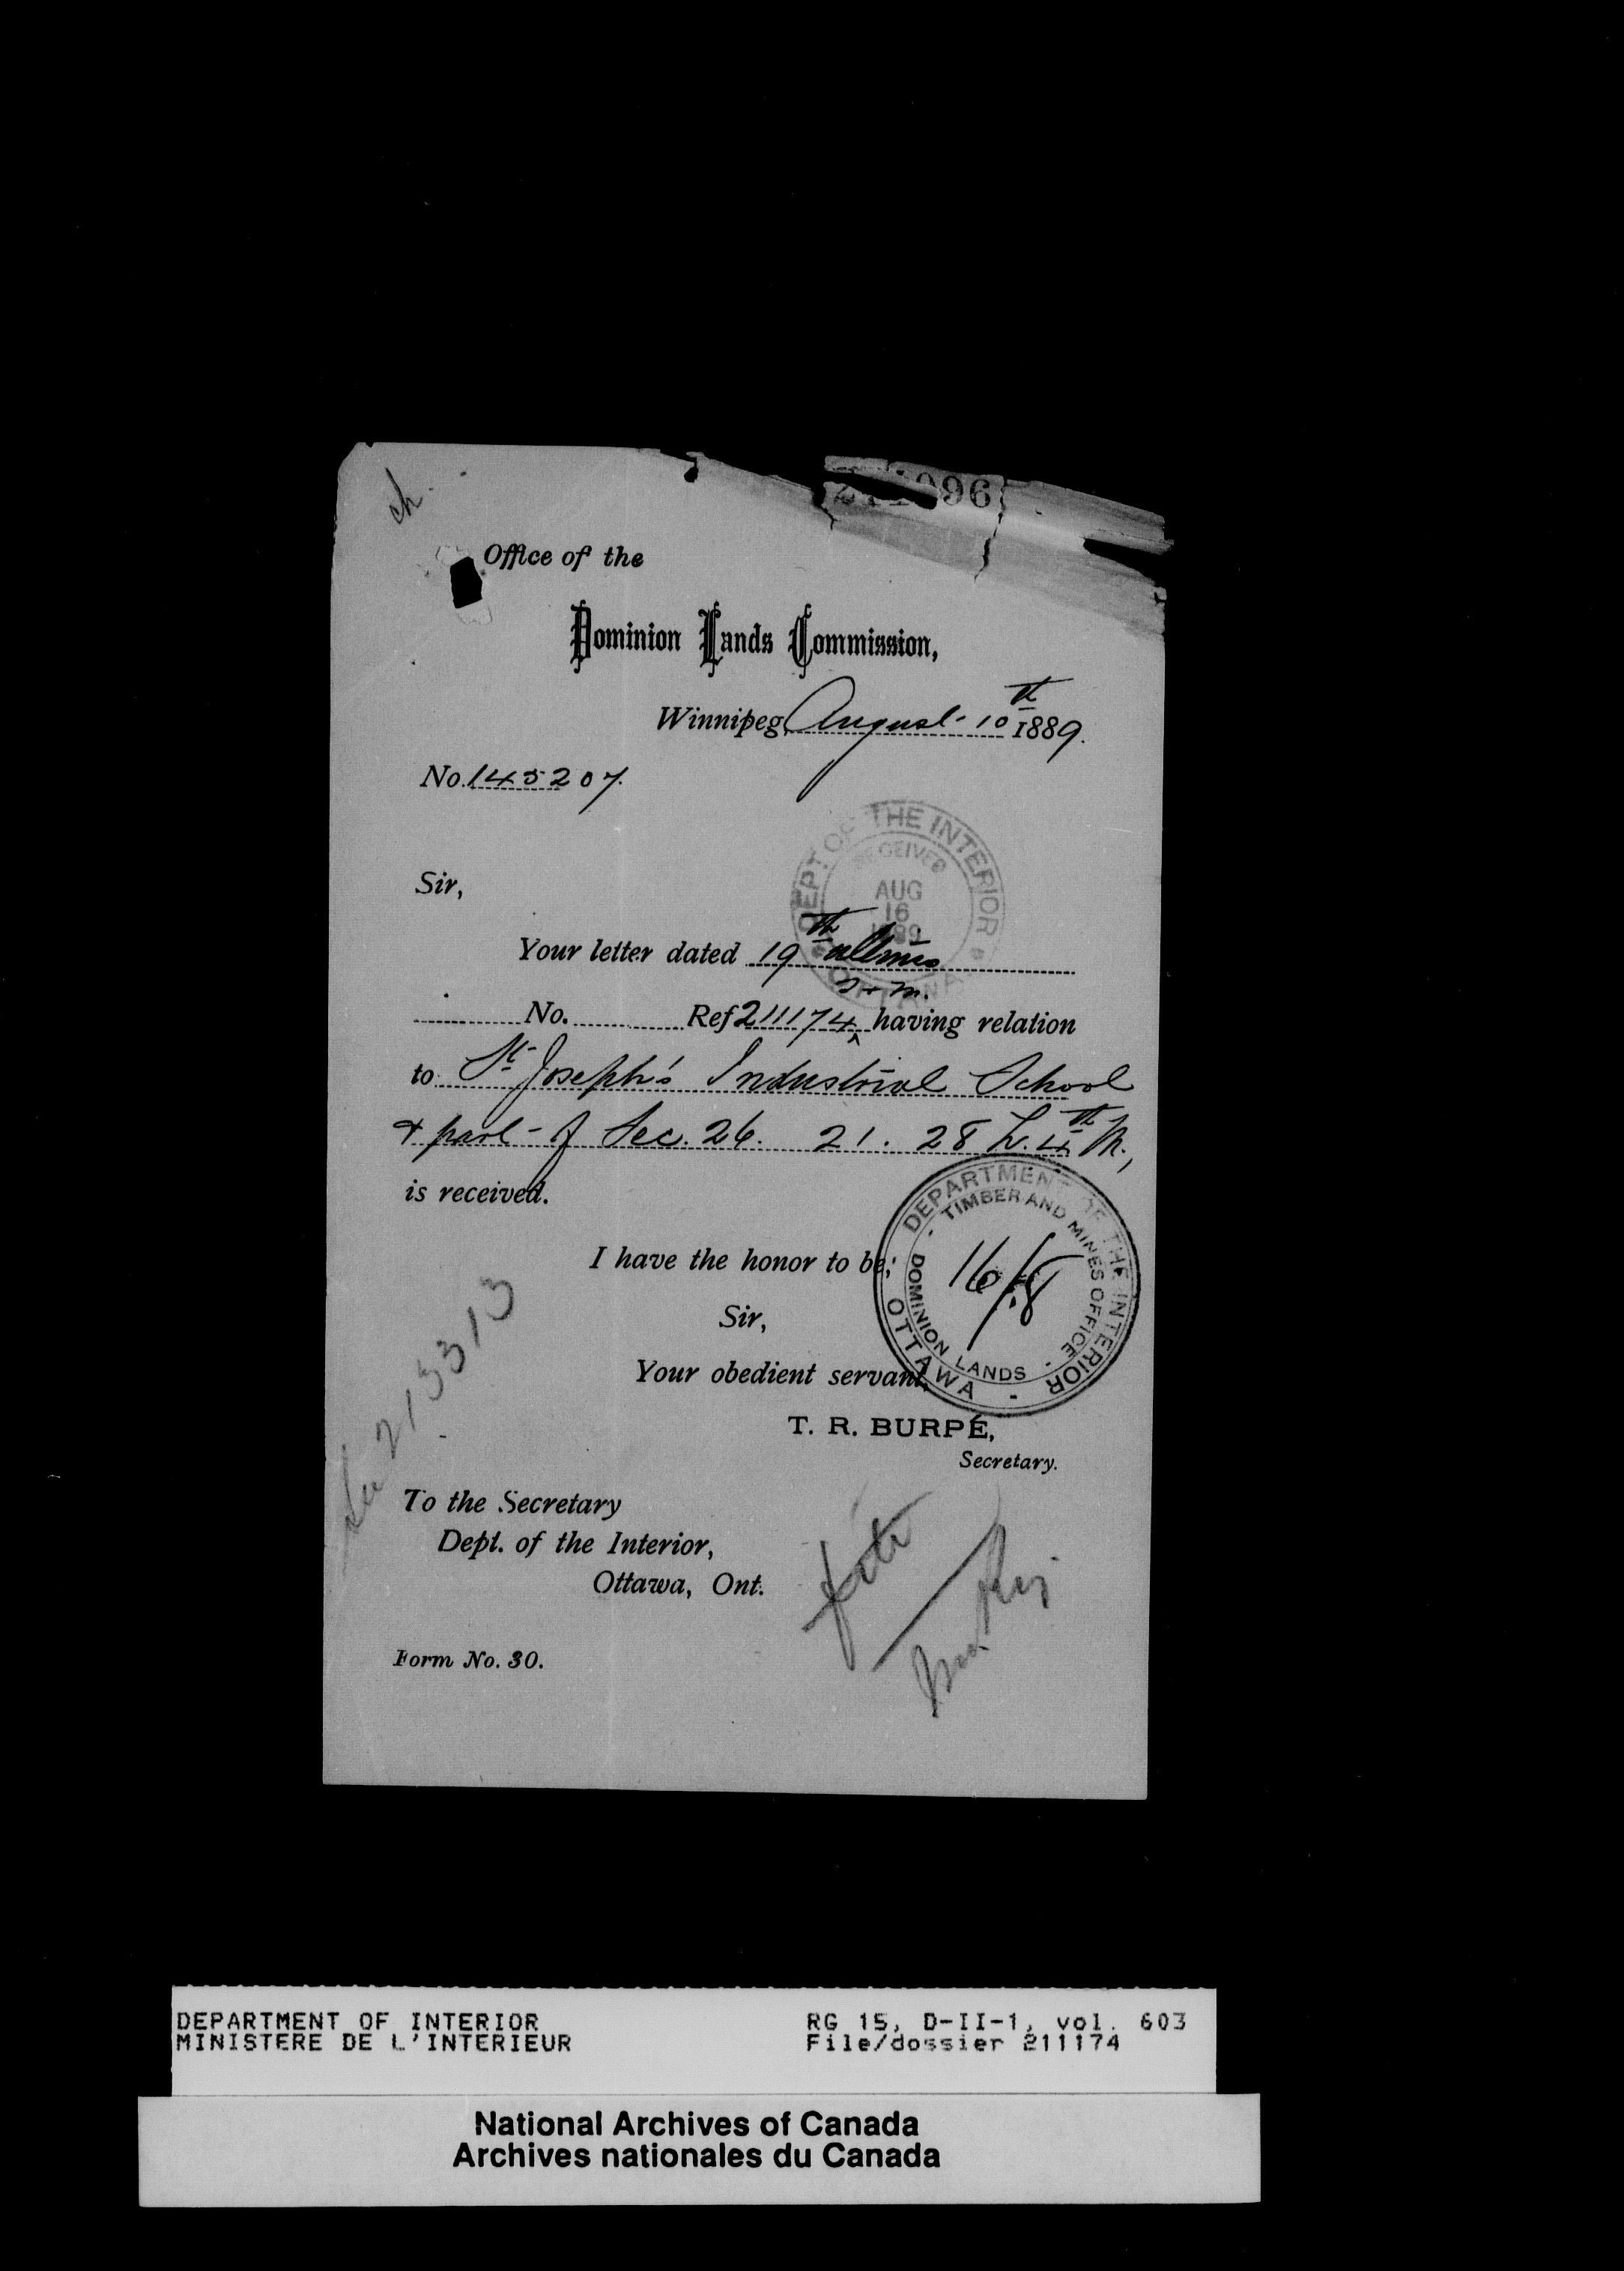 ch.
96
Office of the
Dominion Lands Commission,
Winnipeg, August 10th 1889.
No. 145207.
DEPT. OF THE INTERIOR
RECEIVED
AUG
16
1889
OTTAWA
Sir,
Your letter dated 19th ultimo
T & M.
No. Ref 211174 ^ having relation
to St Joseph's Industrial School
& part of Sec. 26. 21. 28 W. 4th M.,
is received.
DEPARTMENT OF THE INTERIOR
TIMBER AND MINES OFFICE
DOMINION LANDS
OTTAWA
16/8
I have the honor to be,
Sir,
Your obedient servant,
T. R. BURPÉ,
Secretary.
213313
To the Secretary
Dept. of the Interior,
Ottawa, Ont.
Form No. 30.
DEPARTMENT OF INTERIOR RG 15, D-II-1, vol. 603
MINISTERE DE L'INTERIEUR File/dossier 211174
National Archives of Canada
Archives nationales du Canada